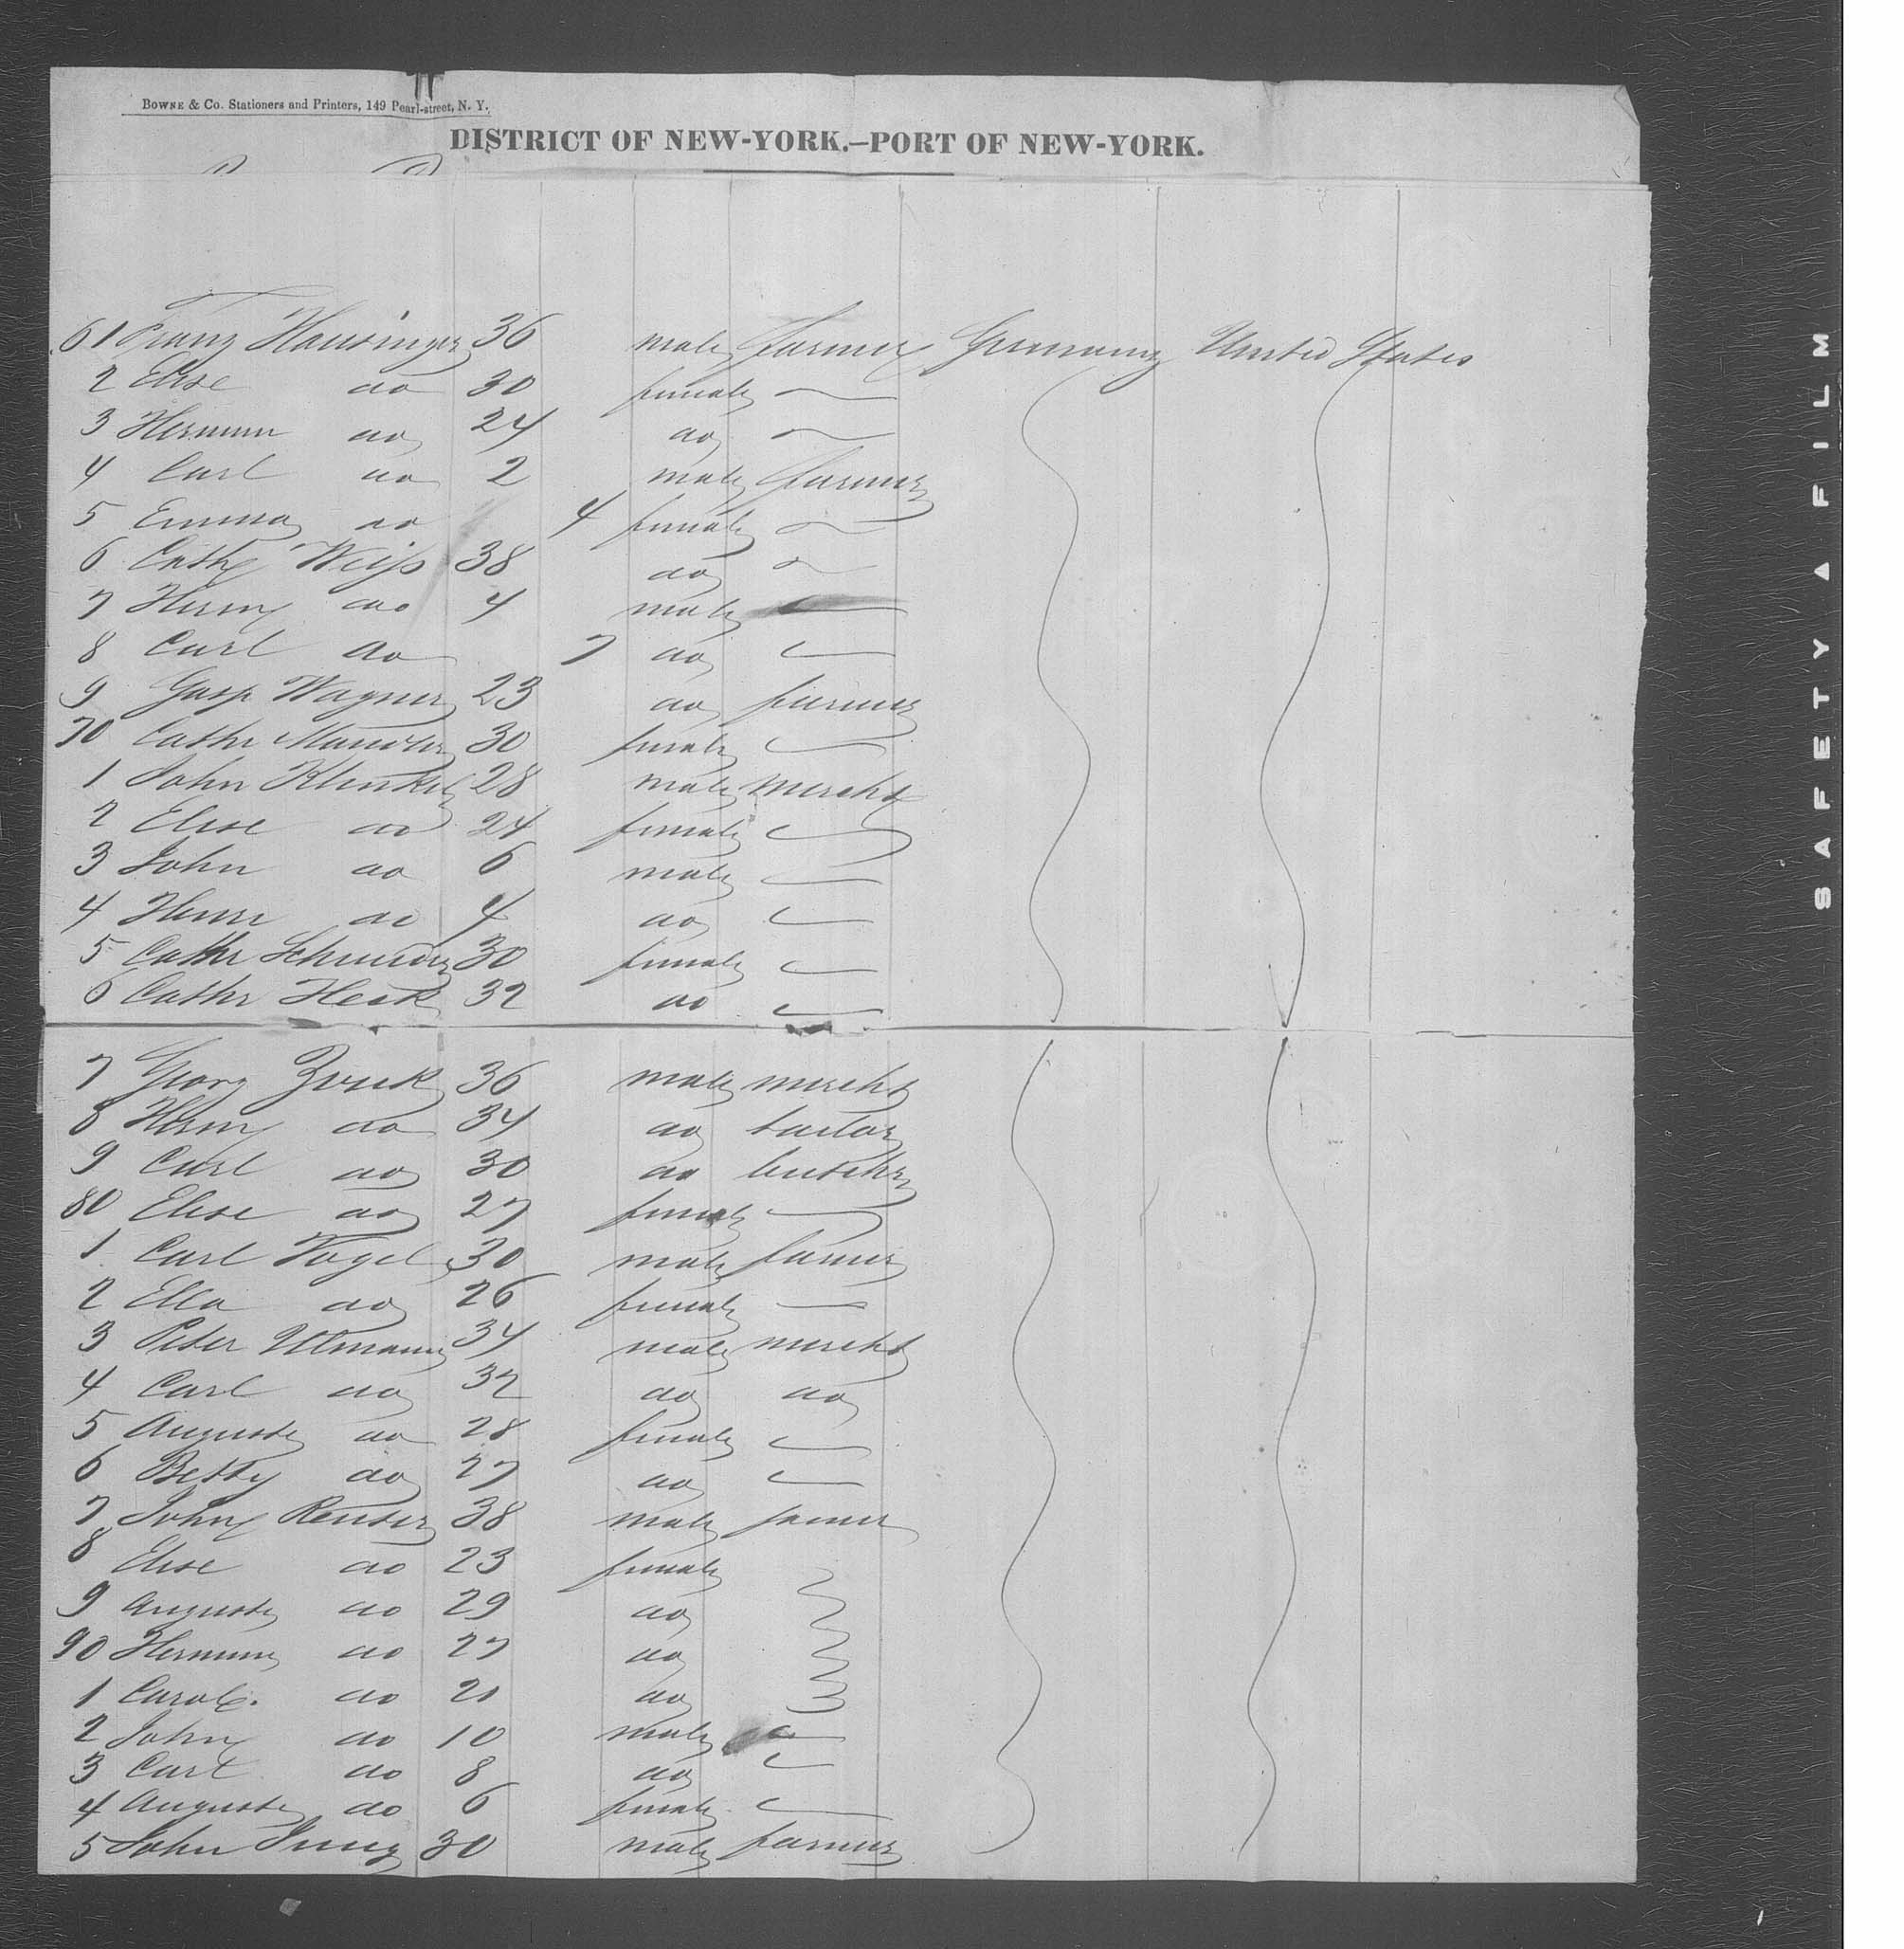 BOWNE & CO. Stationers and Printers, 149 Pearl-street, N. Y.
DISTRICT OF NEW-YORK.–PORT OF NEW-YORK.
61 Franz Hausinger 36 male farmer Germany United States
2 Elise do 30 female
3 Hermin do 24 do
4 Carl do 2 male farmer
5 Emma do 4 female
6 Cath Weiss 38 do
7 Herm do 4 male
8 Carl do 7 do
9 Gasp Wagner 23 do farmer
70 Cathr 30 female
1 John Klinkel 28 male mercht
2 Elise do 24 female
3 John do 6 male
4 Henri do 4 do
5 Cathr Schneider 30 female
6 Cathr Heck 32 do
7 Georg Zwick 36 male mercht
8 Herm do 34 do tailor
9 Carl do 30 do butchr
80 Elise do 27 female
1 Carl Vogel 30 male farmer
2 Ella do 26 female
3 Peter Ulmann 34 male mercht
4 Carl do 32 do do
5 Auguste do 28 female
6 Betty do 27 do
7 John Reuter 38 male farmer
8 Elise do 23 female
9 Auguste do 29 do
90 Hermine do 27 do
1 Carol. do 21 do
2 John do 10 male
3 Carl do 8 do
4 Auguste do 6 female
5 John Jung 30 male farmer
SAFETY A FILM